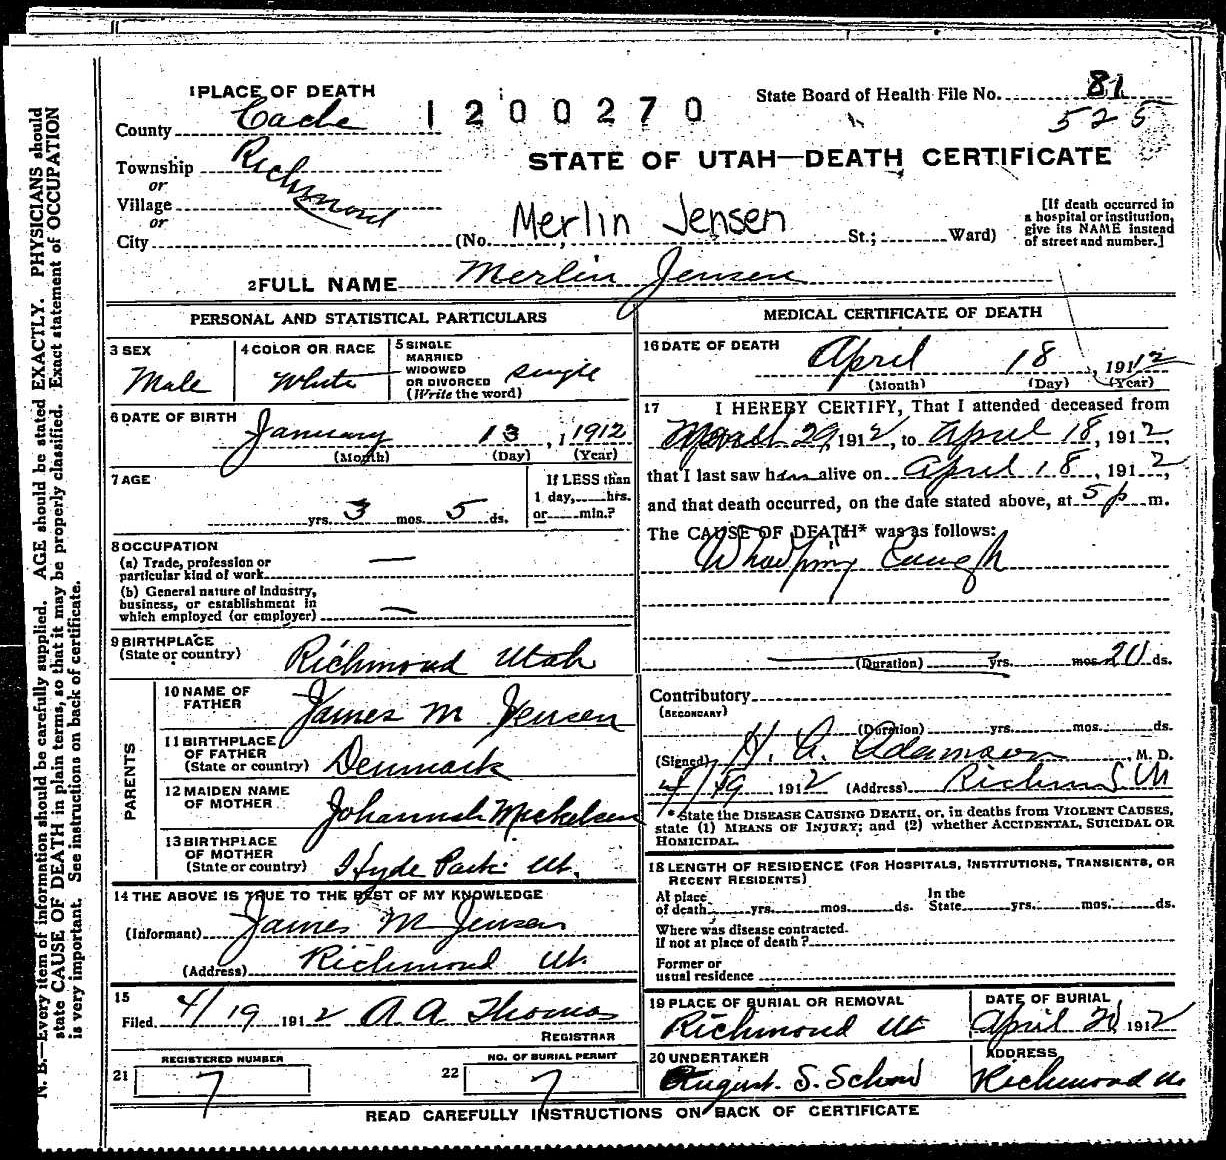 1 PLACE OF DEATH
County Cache
1200270
State Board of Health File No. 81
525
STATE OF UTAH—DEATH CERTIFICATE
Township Richmond
or
Village
or
City
(No. Merlin Jensen St.; Ward)
[If death occurred in
a hospital or institution,
give its NAME instead
of street and number.]
2 FULL NAME Merlin Jensen
PERSONAL AND STATISTICAL PARTICULARS
3 SEX
Male
4 COLOR OR RACE
White
5 SINGLE
MARRIED
WIDOWED
OR DIVORCED
(Write the word)
single
6 DATE OF BIRTH
January 13, 1 1912
(Month) (Day) (Year)
7 AGE
yrs. 3 mos. 5 ds.
If LESS than
1 day, hrs.
or min.?
8 OCCUPATION
(a) Trade, profession or
particular kind of work —
(b) General nature of industry,
business, or establishment in
which employed (or employer) —
9 BIRTHPLACE
(State or country) Richmond Utah
PARENTS
10 NAME OF
FATHER James M Jensen
11 BIRTHPLACE
OF FATHER
(State or country) Denmark
12 MAIDEN NAME
OF MOTHER Johannah Mickelsen
13 BIRTHPLACE
OF MOTHER
(State or country) Hyde Park Ut.
14 THE ABOVE IS TRUE TO THE BEST OF MY KNOWLEDGE
(Informant) James M Jensen
(Address) Richmond Ut.
15
Filed 4/19 1912 A. A. Thomas
REGISTRAR
REGISTERED NUMBER
21 7
NO. OF BURIAL PERMIT
22 7
MEDICAL CERTIFICATE OF DEATH
16 DATE OF DEATH
April 18, 1912
(Month) (Day) (Year)
17 I HEREBY CERTIFY, That I attended deceased from
March 29, 1912, to April 18, 1912,
that I last saw him alive on April 18, 1912,
and that death occurred, on the date stated above, at 5 p m.
The CAUSE OF DEATH* was as follows:
Whooping Cough
(Duration) yrs. mos. 20 ds.
Contributory
(SECONDARY)
(Duration) yrs. mos. ds.
(Signed) H. A. Adamson, M. D.
4/19 1912 (Address) Richmond
*State the DISEASE CAUSING DEATH, or, in deaths from VIOLENT CAUSES,
state (1) MEANS OF INJURY; and (2) whether ACCIDENTAL, SUICIDAL OR
HOMICIDAL.
18 LENGTH OF RESIDENCE (FOR HOSPITALS, INSTITUTIONS, TRANSIENTS, OR
RECENT RESIDENTS)
At place
of death yrs. mos. ds.
In the
State yrs. mos. ds.
Where was disease contracted.
if not at place of death?
Former or
usual residence
19 PLACE OF BURIAL OR REMOVAL
Richmond Ut
DATE OF BURIAL
April 20, 1912
20 UNDERTAKER
August. S. Schow
ADDRESS
Richmond
READ CAREFULLY INSTRUCTIONS ON BACK OF CERTIFICATE
N. B.—Every item of information should be carefully supplied. AGE should be stated EXACTLY. PHYSICIANS should
state CAUSE OF DEATH in plain terms, so that it may be properly classified. Exact statement of OCCUPATION
is very important. See instructions on back of certificate.